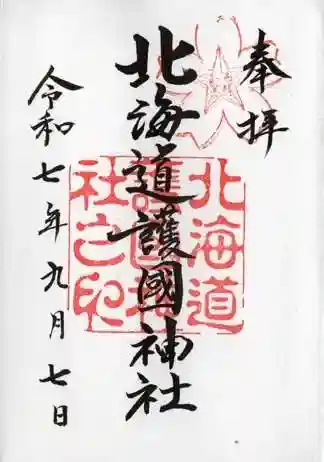 奉拝
北海道護國神社
北海道護國神社之印
令和七年九月七日